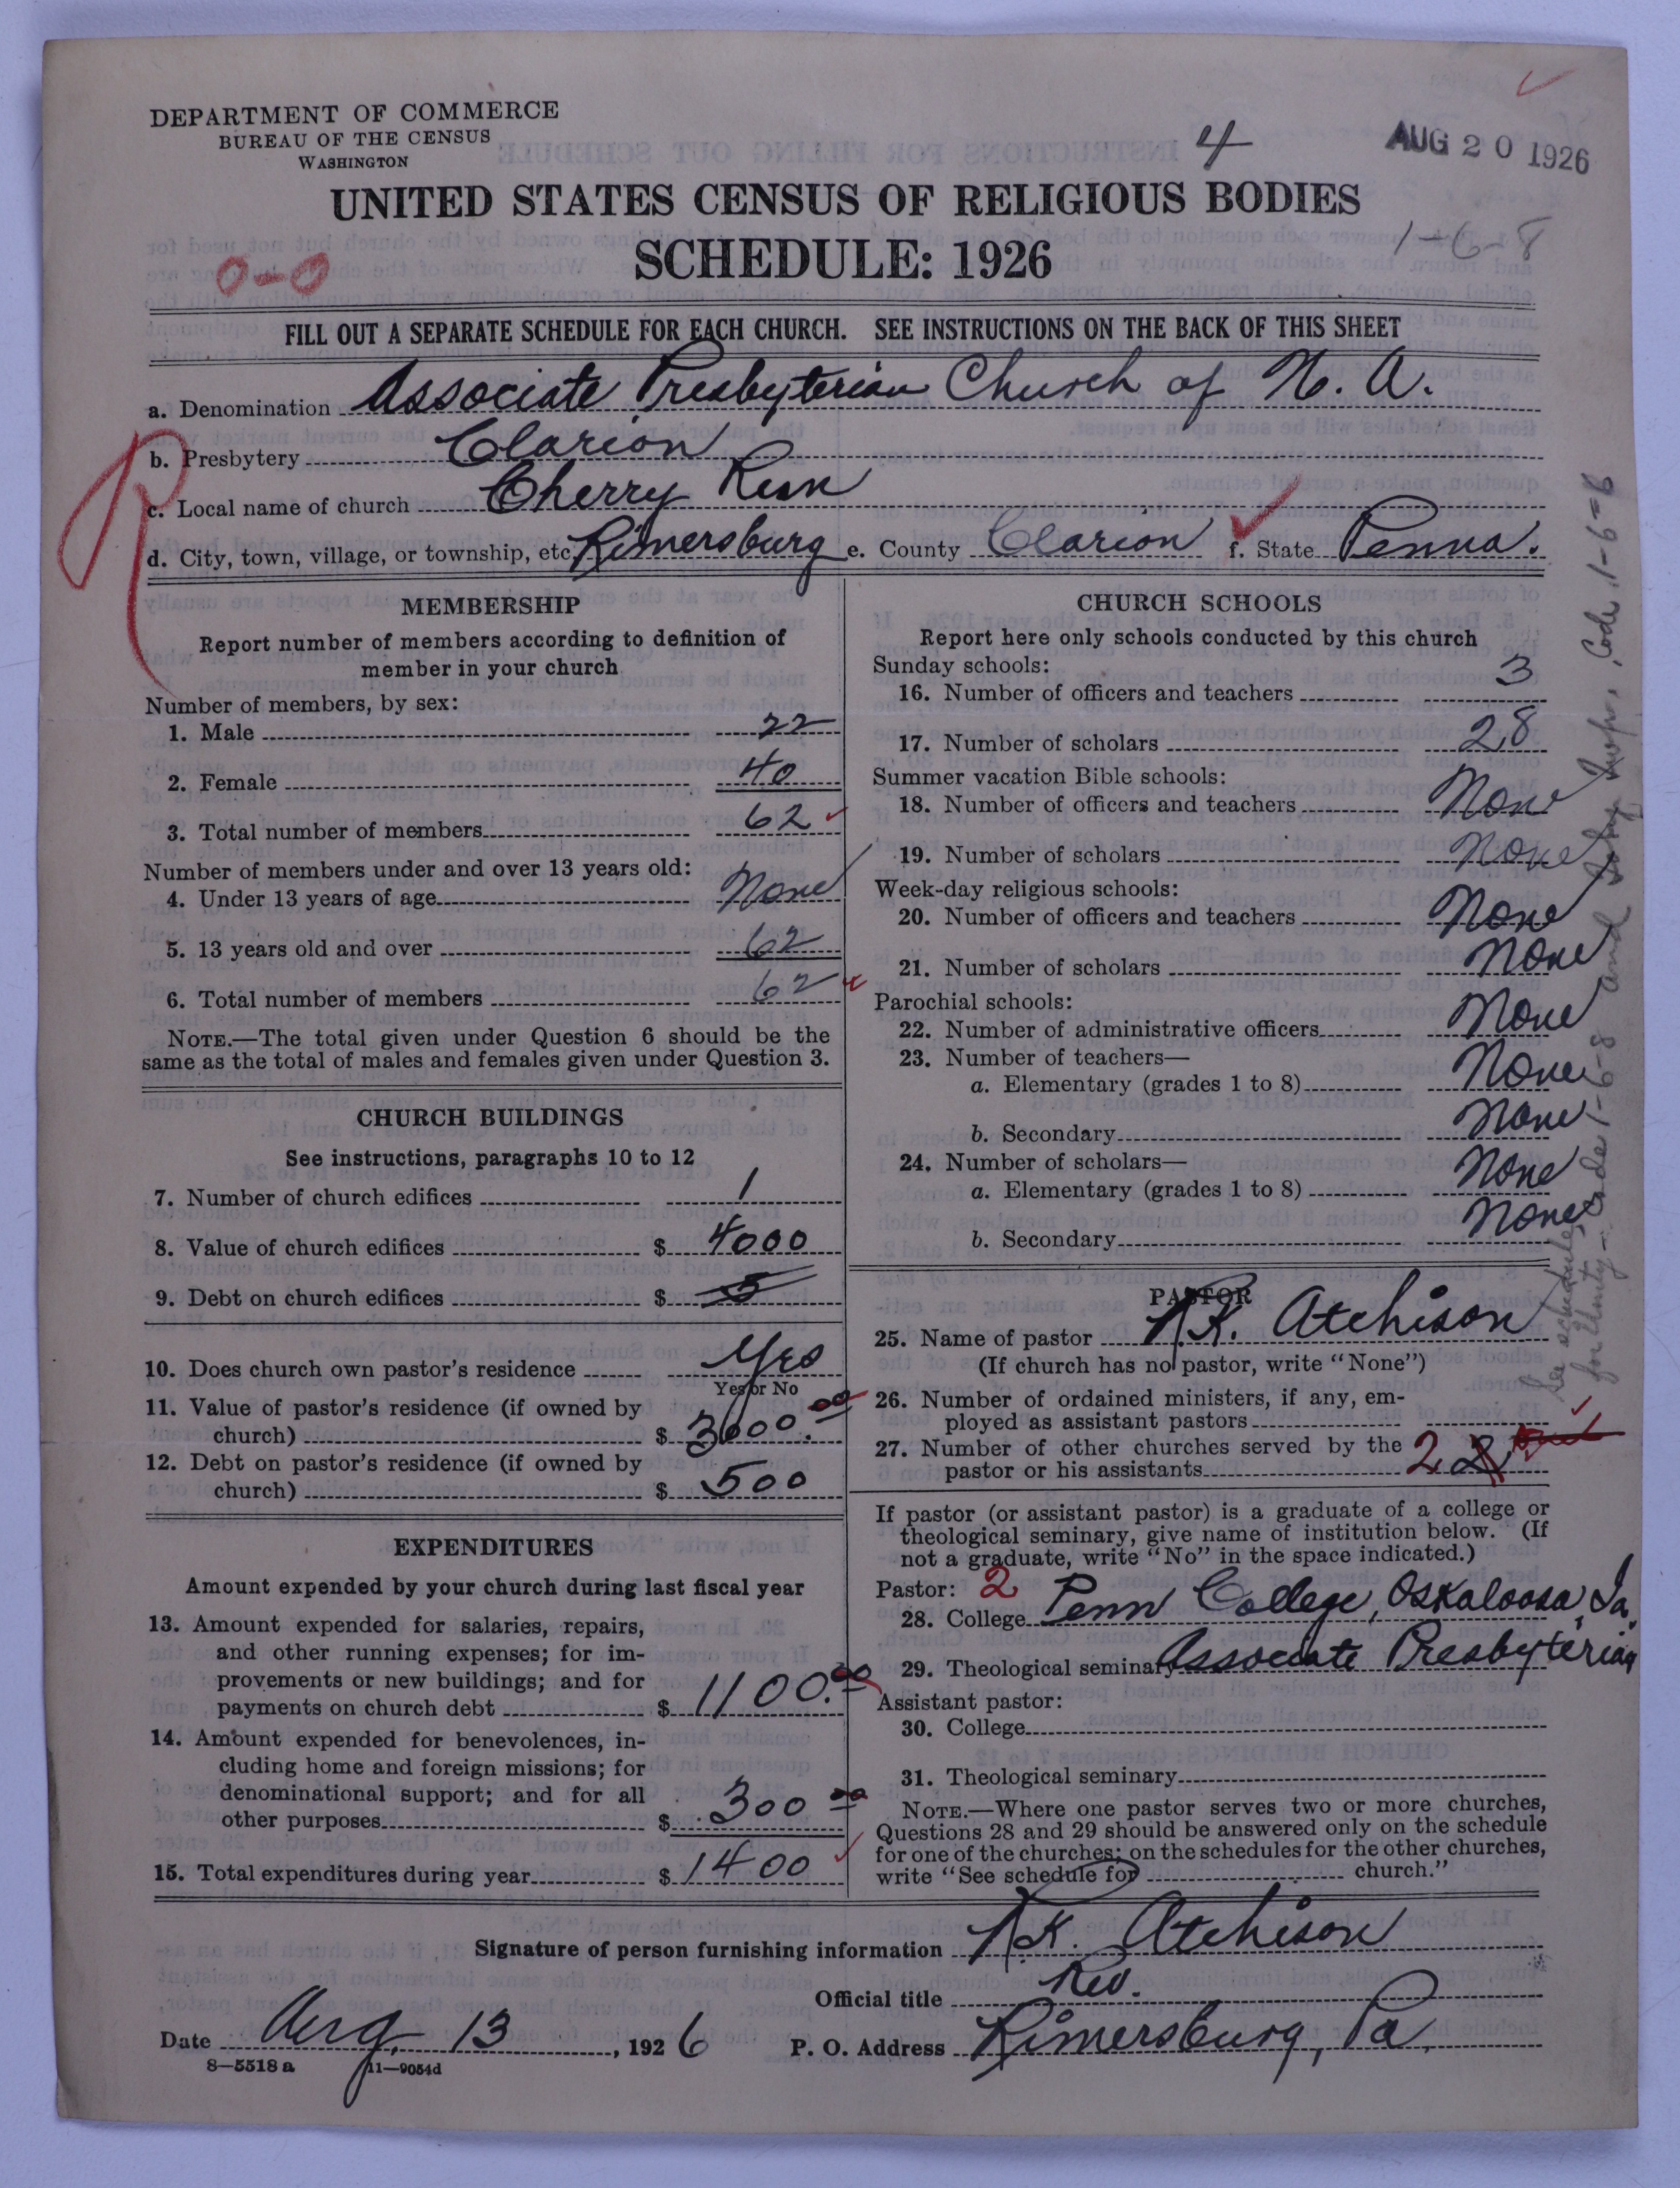 DEPARTMENT OF COMMERCE
BUREAU OF THE CENSUS
WASHINGTON
4
AUG 20 1926
UNITED STATES CENSUS OF RELIGIOUS BODIES
SCHEDULE: 1926
1-6-8
0-0
FILL OUT A SEPARATE SCHEDULE FOR EACH CHURCH. SEE INSTRUCTIONS ON THE BACK OF THIS SHEET
a. Denomination Associate Presbyterian Church of N. A.
b. Presbytery Clarion
c. Local name of church Cherry Run
d. City, town, village, or township, etc. Rimersburg e. County Clarion f. State Penna.
R
MEMBERSHIP
Report number of members according to definition of
member in your church
Number of members, by sex:
1. Male 22
2. Female 40
3. Total number of members 62
Number of members under and over 13 years old:
4. Under 13 years of age None
5. 13 years old and over 62
6. Total number of members 62
NOTE.—The total given under Question 6 should be the
same as the total of males and females given under Question 3.
CHURCH BUILDINGS
See instructions, paragraphs 10 to 12
7. Number of church edifices 1
8. Value of church edifices $ 4000
9. Debt on church edifices $
10. Does church own pastor's residence Yes
Yes or No
11. Value of pastor's residence (if owned by
church) $ 3000.00
12. Debt on pastor's residence (if owned by
church) $ 500
EXPENDITURES
Amount expended by your church during last fiscal year
13. Amount expended for salaries, repairs,
and other running expenses; for im-
provements or new buildings; and for
payments on church debt $ 1100.00
14. Amount expended for benevolences, in-
cluding home and foreign missions; for
denominational support; and for all
other purposes $ 300 00
15. Total expenditures during year $ 1400
CHURCH SCHOOLS
Report here only schools conducted by this church
Sunday schools:
16. Number of officers and teachers 3
17. Number of scholars 28
Summer vacation Bible schools:
18. Number of officers and teachers None
19. Number of scholars None
Week-day religious schools:
20. Number of officers and teachers None
21. Number of scholars None
Parochial schools:
22. Number of administrative officers None
23. Number of teachers—
a. Elementary (grades 1 to 8) None
b. Secondary None
24. Number of scholars—
a. Elementary (grades 1 to 8) None
b. Secondary None
PASTOR
25. Name of pastor R.K. Atchison
(If church has no pastor, write "None")
26. Number of ordained ministers, if any, em-
ployed as assistant pastors
27. Number of other churches served by the
pastor or his assistants 2 2
If pastor (or assistant pastor) is a graduate of a college or
theological seminary, give name of institution below. (If
not a graduate, write "No" in the space indicated.)
Pastor: 2
28. College Penn College, Oskaloosa, Ia.
29. Theological seminary Associate Presbyterian
Assistant pastor:
30. College
31. Theological seminary
NOTE.—Where one pastor serves two or more churches,
Questions 28 and 29 should be answered only on the schedule
for one of the churches; on the schedules for the other churches,
write "See schedule for church."
See schedules
for Unity - code 1-6-8 and Hopr, Code, 1-6-6
Signature of person furnishing information R.K. Atchison
Official title Rev.
Date Aug. 13, 1926 P. O. Address Rimersburg, Pa.
8—5518 a 11—9054d